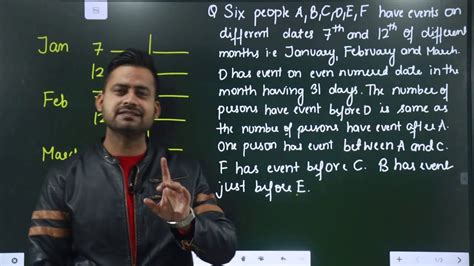 Q Six people A,B,C,D,E,F have events on
different dates 7th and 12th of different
months i.e January, February and March.
D has event on even numred date in the
month having 31 days. The number of
pusons have event before D is same as
the numbe of pusons have event after A.
One puson has event between A and C.
F has event before C. B has event
just before E.
Jan 7
12
Feb 7
12
March
1/3